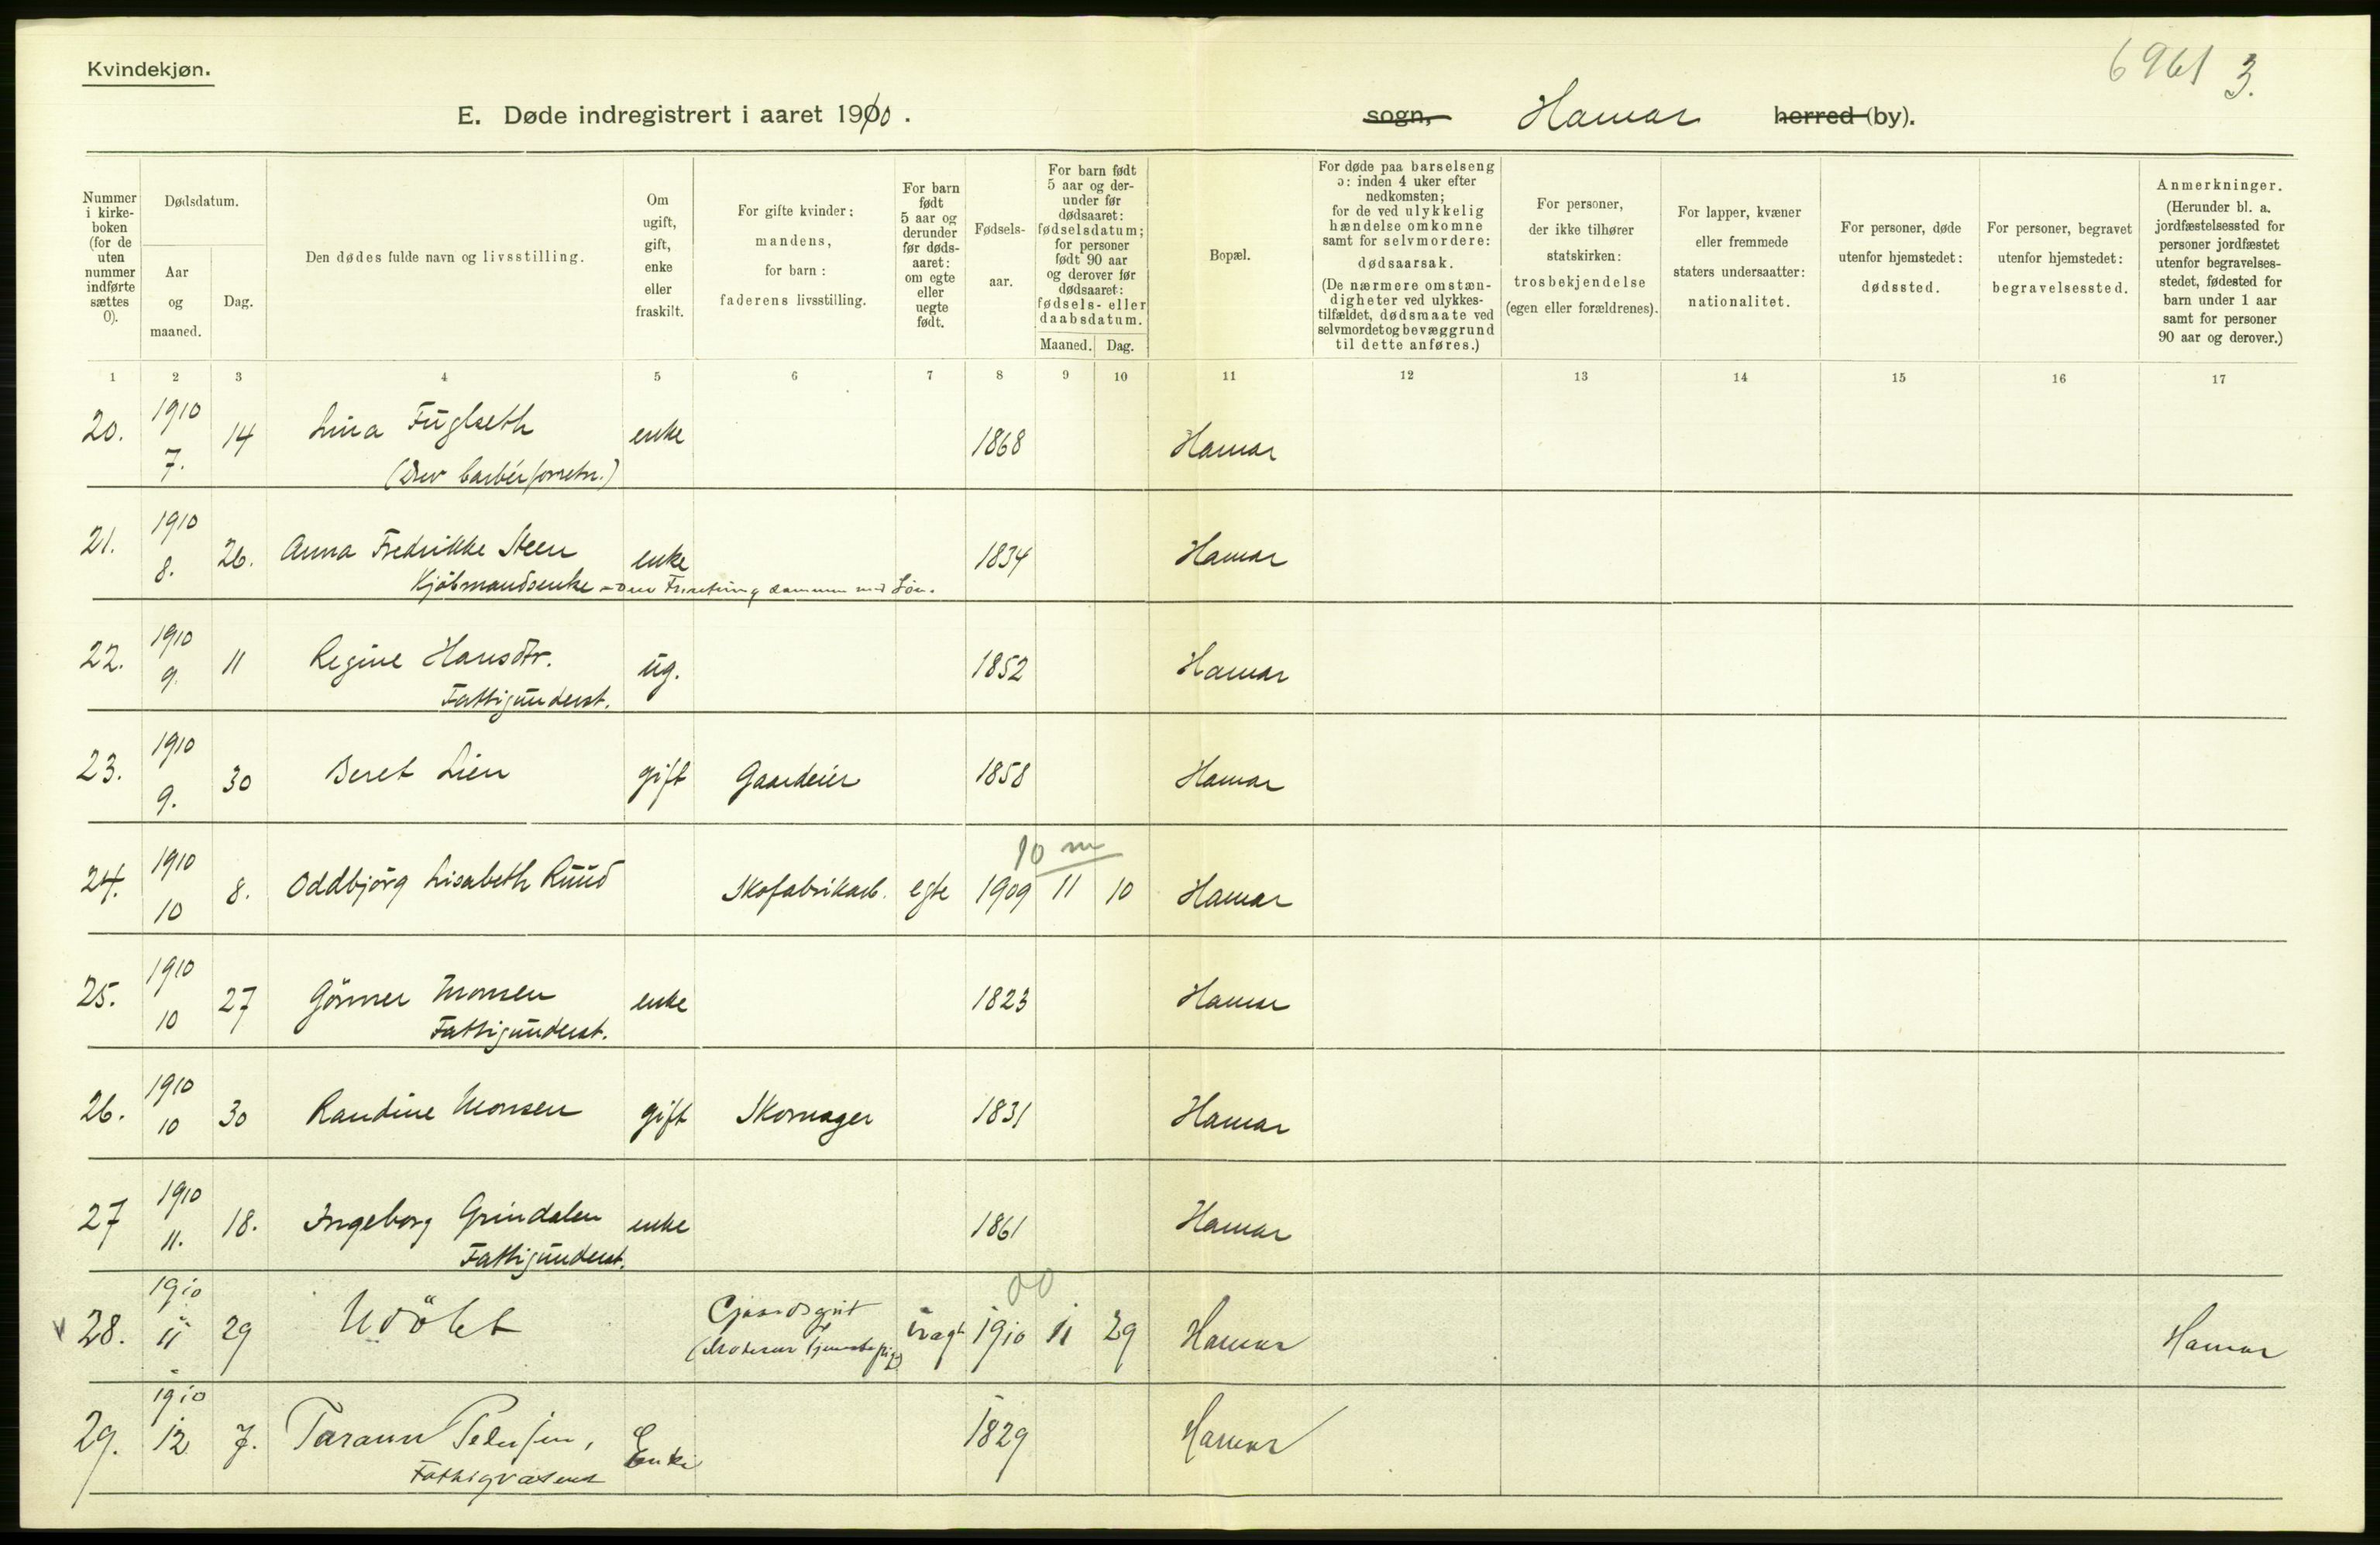 Kvindekjøn.
6961 3.
E. Døde indregistrert i aaret 1910.
sogn, Hamar herred (by).
Nummer i kirkeboken (for de uten nummer indførte sættes 0).
Dødsdatum.
Aar og maaned.
Dag.
Den dødes fulde navn og livsstilling.
Om ugift, gift, enke eller fraskilt.
For gifte kvinder: mandens, for barn: faderens livsstilling.
For barn født 5 aar og derunder før dødsaaret: om egte eller uegte født.
Fødselsaar.
For barn født 5 aar og derunder før dødsaaret: fødselsdatum; for personer født 90 aar og derover før dødsaaret: fødsels- eller daabsdatum.
Maaned. Dag.
Bopæl.
For døde paa barselseng ɔ: inden 4 uker efter nedkomsten; for de ved ulykkelig hændelse omkomne samt for selvmordere: dødsaarsak.
(De nærmere omstændigheter ved ulykkestilfældet, dødsmaate ved selvmordet og bevæggrund til dette anføres.)
For personer, der ikke tilhører statskirken: trosbekjendelse (egen eller forældrenes).
For lapper, kvæner eller fremmede staters undersaatter: nationalitet.
For personer, døde utenfor hjemstedet: dødssted.
For personer, begravet utenfor hjemstedet: begravelsessted.
Anmerkninger. (Herunder bl. a. jordfæstelsessted for personer jordfæstet utenfor begravelsesstedet, fødested for barn under 1 aar samt for personer 90 aar og derover.)
1 2 3 4 5 6 7 8 9 10 11 12 13 14 15 16 17
20. 1910 7. 14 Lina Fuglseth enke 1868 Hamar
(Drev barbérforretn.)
21. 1910 8. 26. Anna Fredrikke Steen enke 1834 Hamar
Kjøbmandsenke - Drev Forretning sammen med Søn.
22. 1910 9. 11 Regine Hansdtr. ug. 1852 Hamar
Fattigunderst.
23. 1910 9. 30 Beret Lien gift Gaardeier 1858 Hamar
10 m
24. 1910 10 8. Oddbjørg Lisabeth Ruud Skofabrikarb. egte 1909 11 10 Hamar
25. 1910 10 27 Monsen enke 1823 Hamar
Fattigunderst.
26. 1910 10 30 Randine Monsen gift Skomager 1831 Hamar
27 1910 11. 18. Ingeborg Grindalen enke 1861 Hamar
Fattigunderst.
00
28. 1910 11 29 Udöbt uægt 1910 11 29 Hamar Hamar
(Moderen tjenestepige)
29. 1910 12 7. Pedersen, Enke 1829 Hamar
Fattigvæsenet